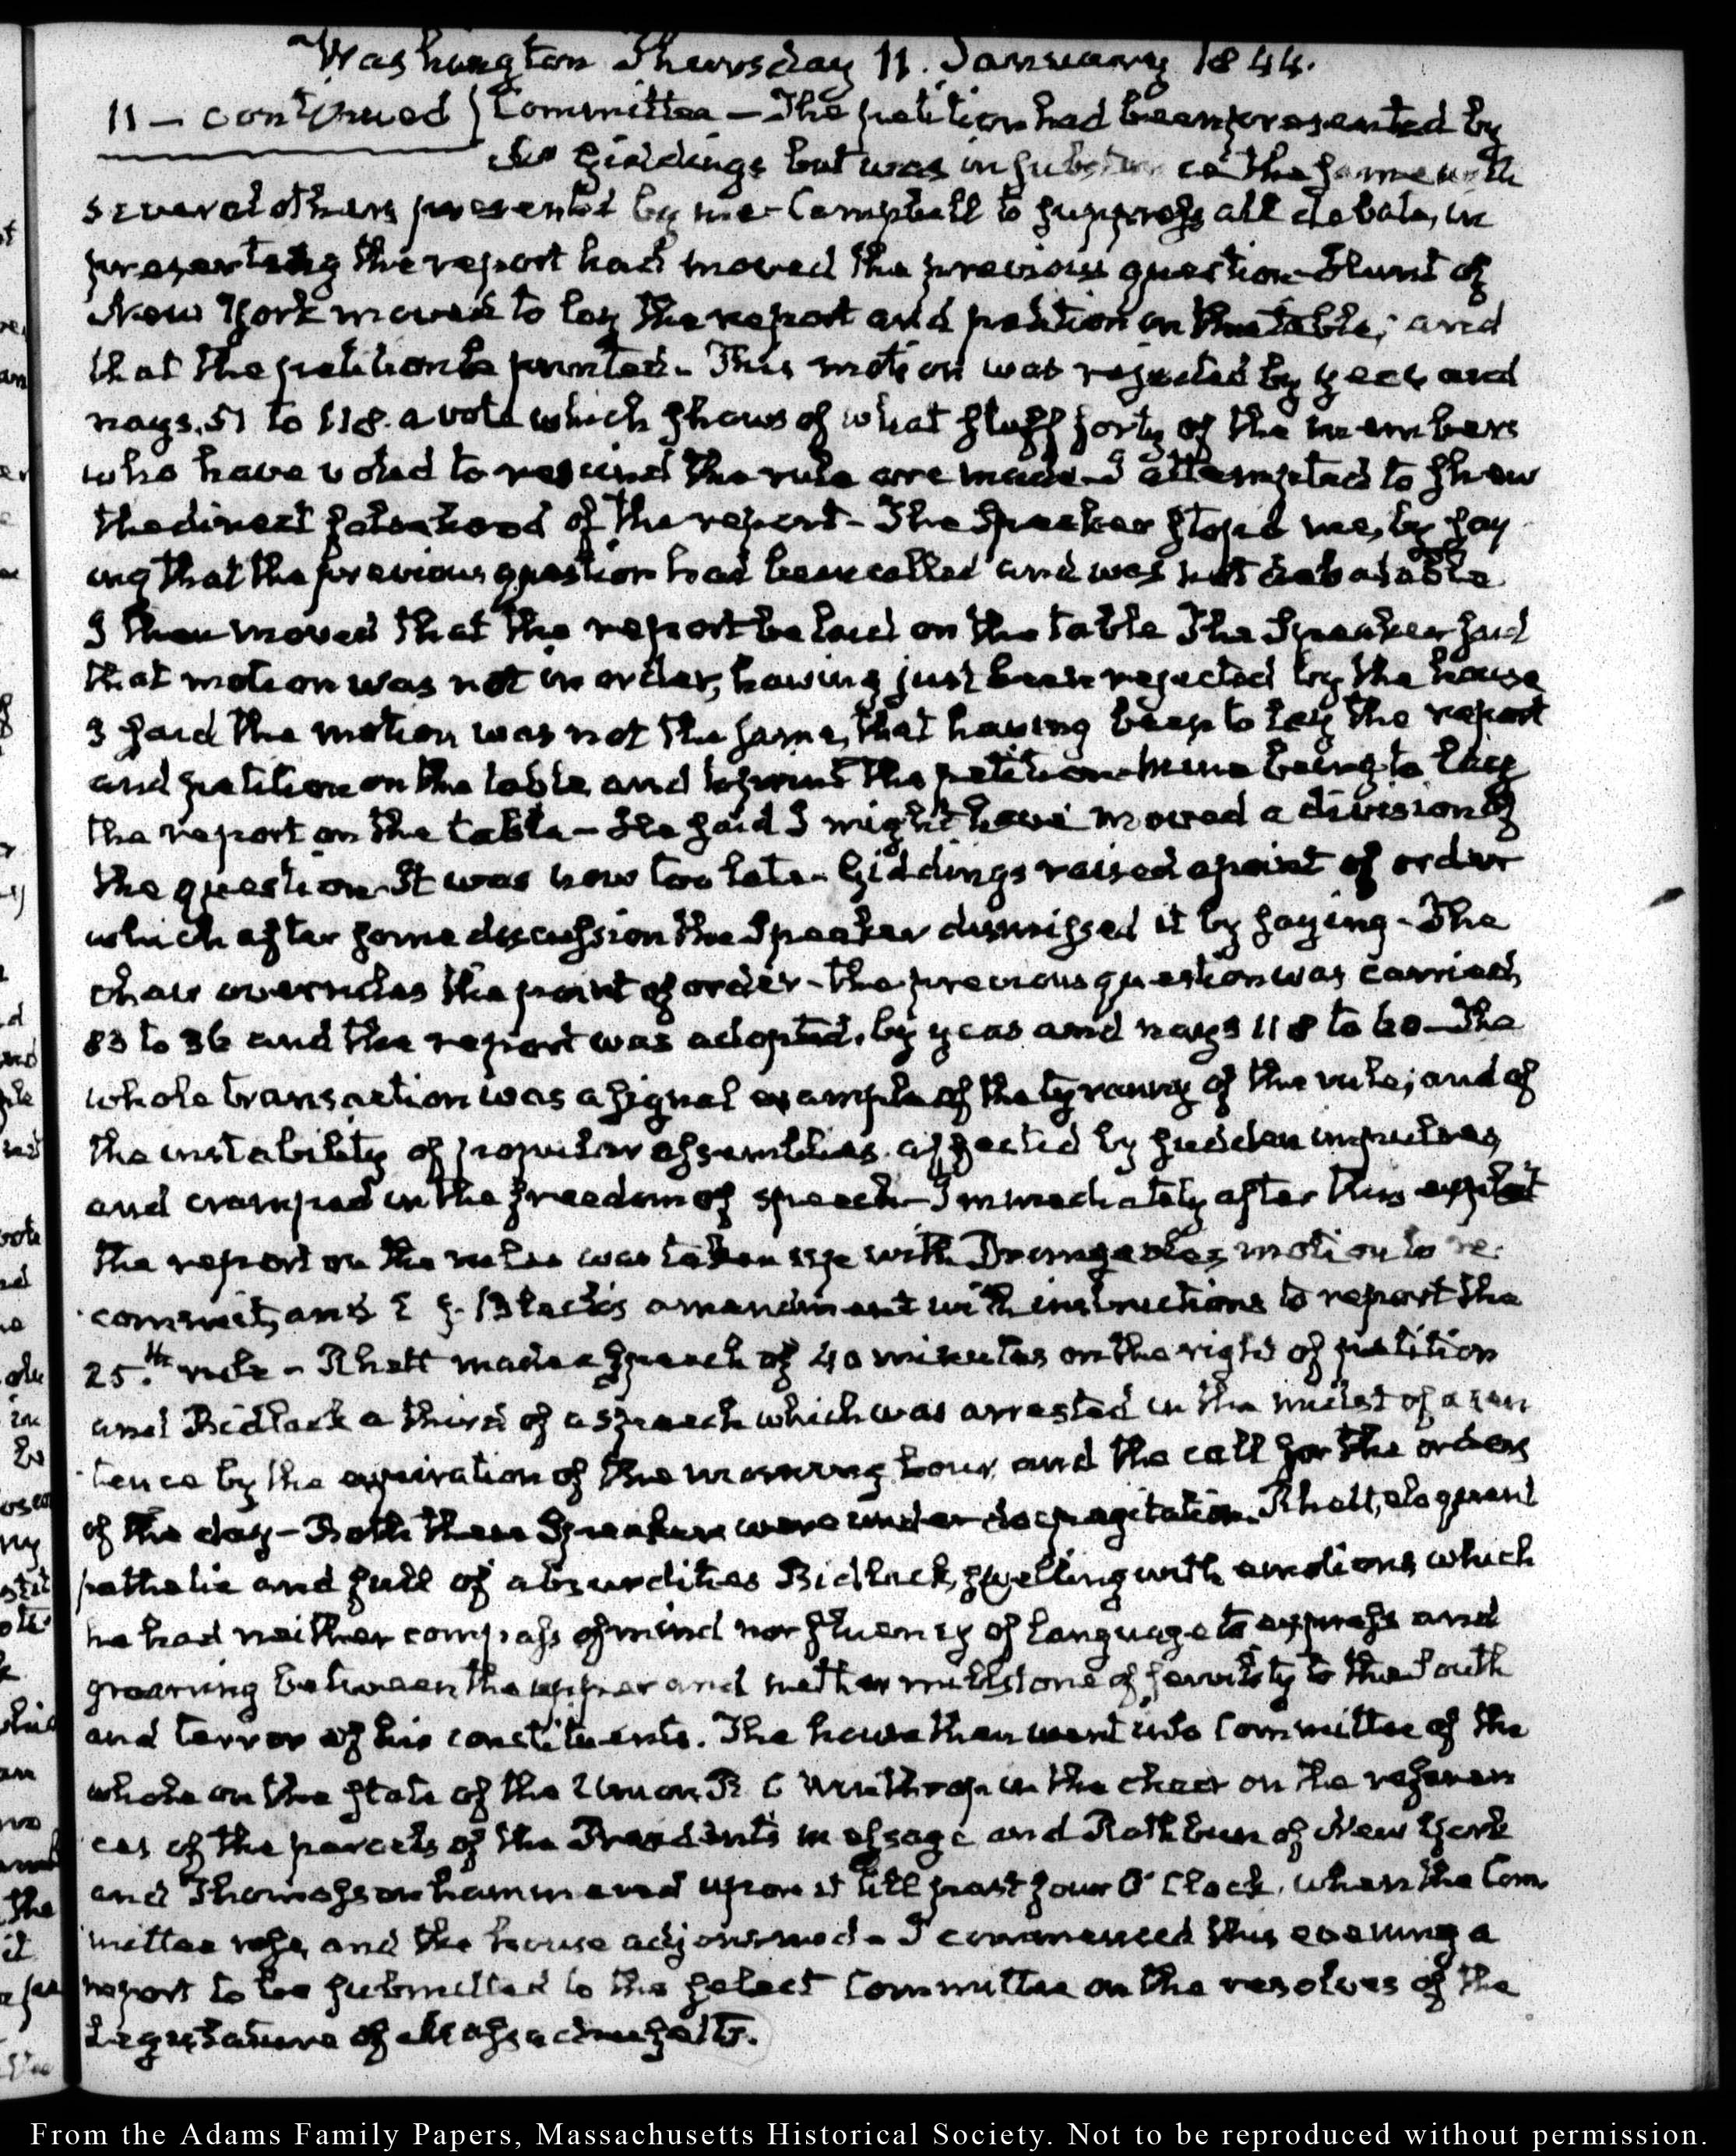 Washington Thursday 11. January 1844.
11 — continued } Committee — The petition had been presented by
Mr Giddings but was in substance the same with
several others presented by me - Campbell to suppress all debate, in
presenting the report had moved the previous question - Hunt of
New York moved to lay the report and petition on the table; and
that the petition be printed - This motion was rejected by yeas and
nays. 51 to 118. a vote which shows of what stuff forty of the members
who have voted to rescind the rule are made - I attempted to show
the direct falsehood of the report - The Speaker stop'd me, by say
ing that the previous question had been called and was not debatable
I then moved that the report be laid on the table The Speaker said
that motion was not in order, having just been rejected by the house
I said the motion was not the same, that having been to lay the report
and petition on the table and to print the petition - mine being to lay
the report on the table - He said I might have moved a division of
the question - It was now too late - Giddings raised a point of order
which after some discussion the Speaker dismissed it by saying - The
chair overrules the point of order - The previous question was carried,
83 to 36 and the report was adopted, by yeas and nays 118 to 60 - The
whole transaction was a signal example of the tyranny of the rule; and of
the instability of popular assemblies affected by sudden impulses,
and cramped in the freedom of speech - Immediately after this exploit
the report on the rules was taken up with Dromgoole's motion to re-
commit, and E. J. Black's amendment with instructions to report the
25.th rule - Rhett made a speech of 40 minutes on the right of petition
and Bidlack a third of a speech which was arrested in the midst of a sen
tence by the expiration of the morning hour, and the call for the orders
of the day - Both these Speakers were under deep agitation. Rhett, eloquent
pathetic and full of absurdities Bidlack, swelling with emotions which
he had neither compass of mind nor fluency of language to express and
groaning between the upper and nether millstone of servility to the South
and terror of his constituents. The house then went into Committee of the
whole on the state of the Union R. C Winthrop in the chair on the referen
ces of the parcels of the President's message and Rathbun of New York
and Thomasson hammered upon it till past four O'Clock, when the Com-
mittee rose, and the house adjourned - I commenced this evening a
report to be submitted to the select Committee on the resolves of the
Legislature of Massachusetts.
From the Adams Family Papers, Massachusetts Historical Society. Not to be reproduced without permission.